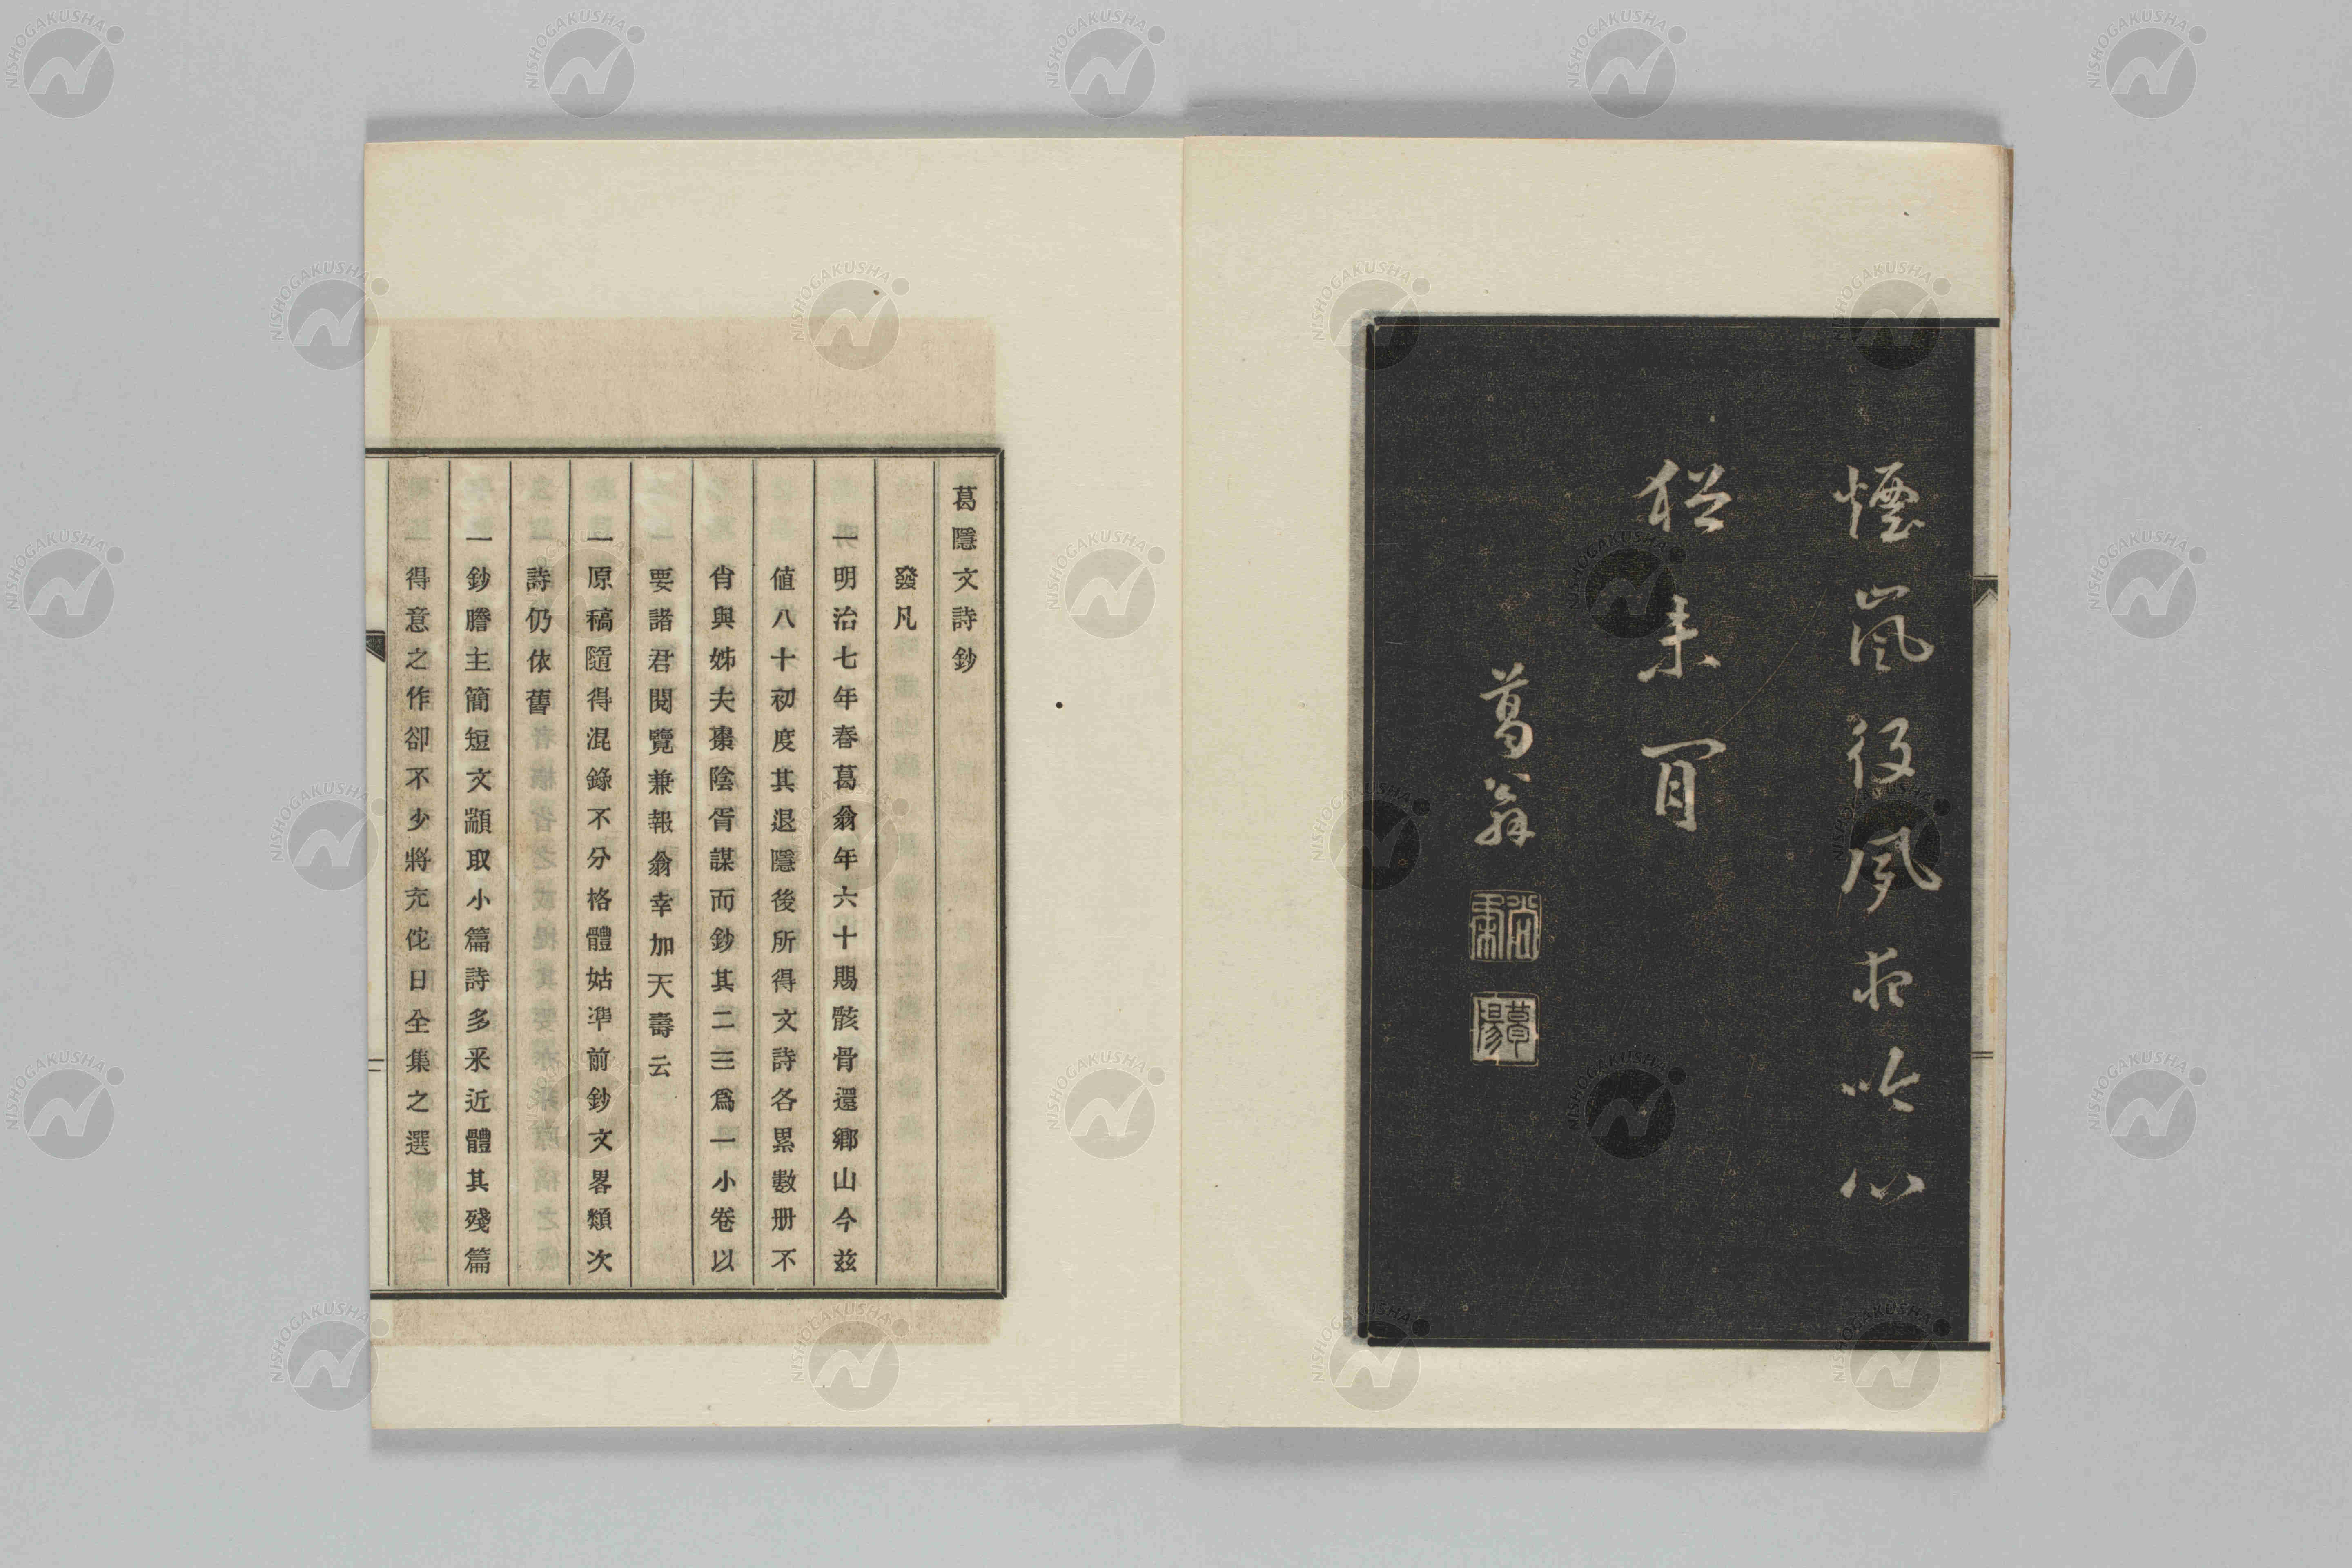 煙嵐役夙夜吟心
猶未閒
葛翁
葛隱文詩鈔
發凡
一明治七年春葛翁年六十賜骸骨還鄉山今茲
値八十初度其退隱後所得文詩各累數册不
肖與姊夫棗陰胥謀而鈔其二三爲一小卷以
要諸君閱覽兼報翁幸加天壽云
一原稿隨得混錄不分格體姑準前鈔文畧類次
詩仍依舊
一鈔謄主簡短文顓取小篇詩多釆近體其殘篇
得意之作卻不少將充佗日全集之選
NISHOGAKUSHA